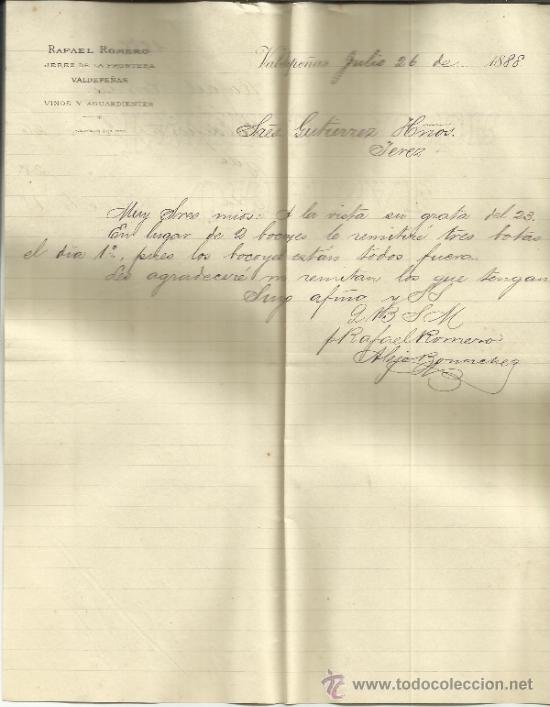 RAFAEL ROMERO
JEREZ DE LA FRONTERA
VALDEPEÑAS
VINOS Y AGUARDIENTES
Valdepeñas Julio 26 de 1888
Sres Gutierrez Hnos.
Jerez
Muy Sres mios: A la vista su grata del 23.
En lugar de 2 bocoyes le remitiré tres botas
el dia 1º, pues los bocoyes están todos fuera.
Les agradeceré m remitan los que tengan
Suyo afmo y SS
Q B S M
p Rafael Romero
todocoleccion
www.todocoleccion.net